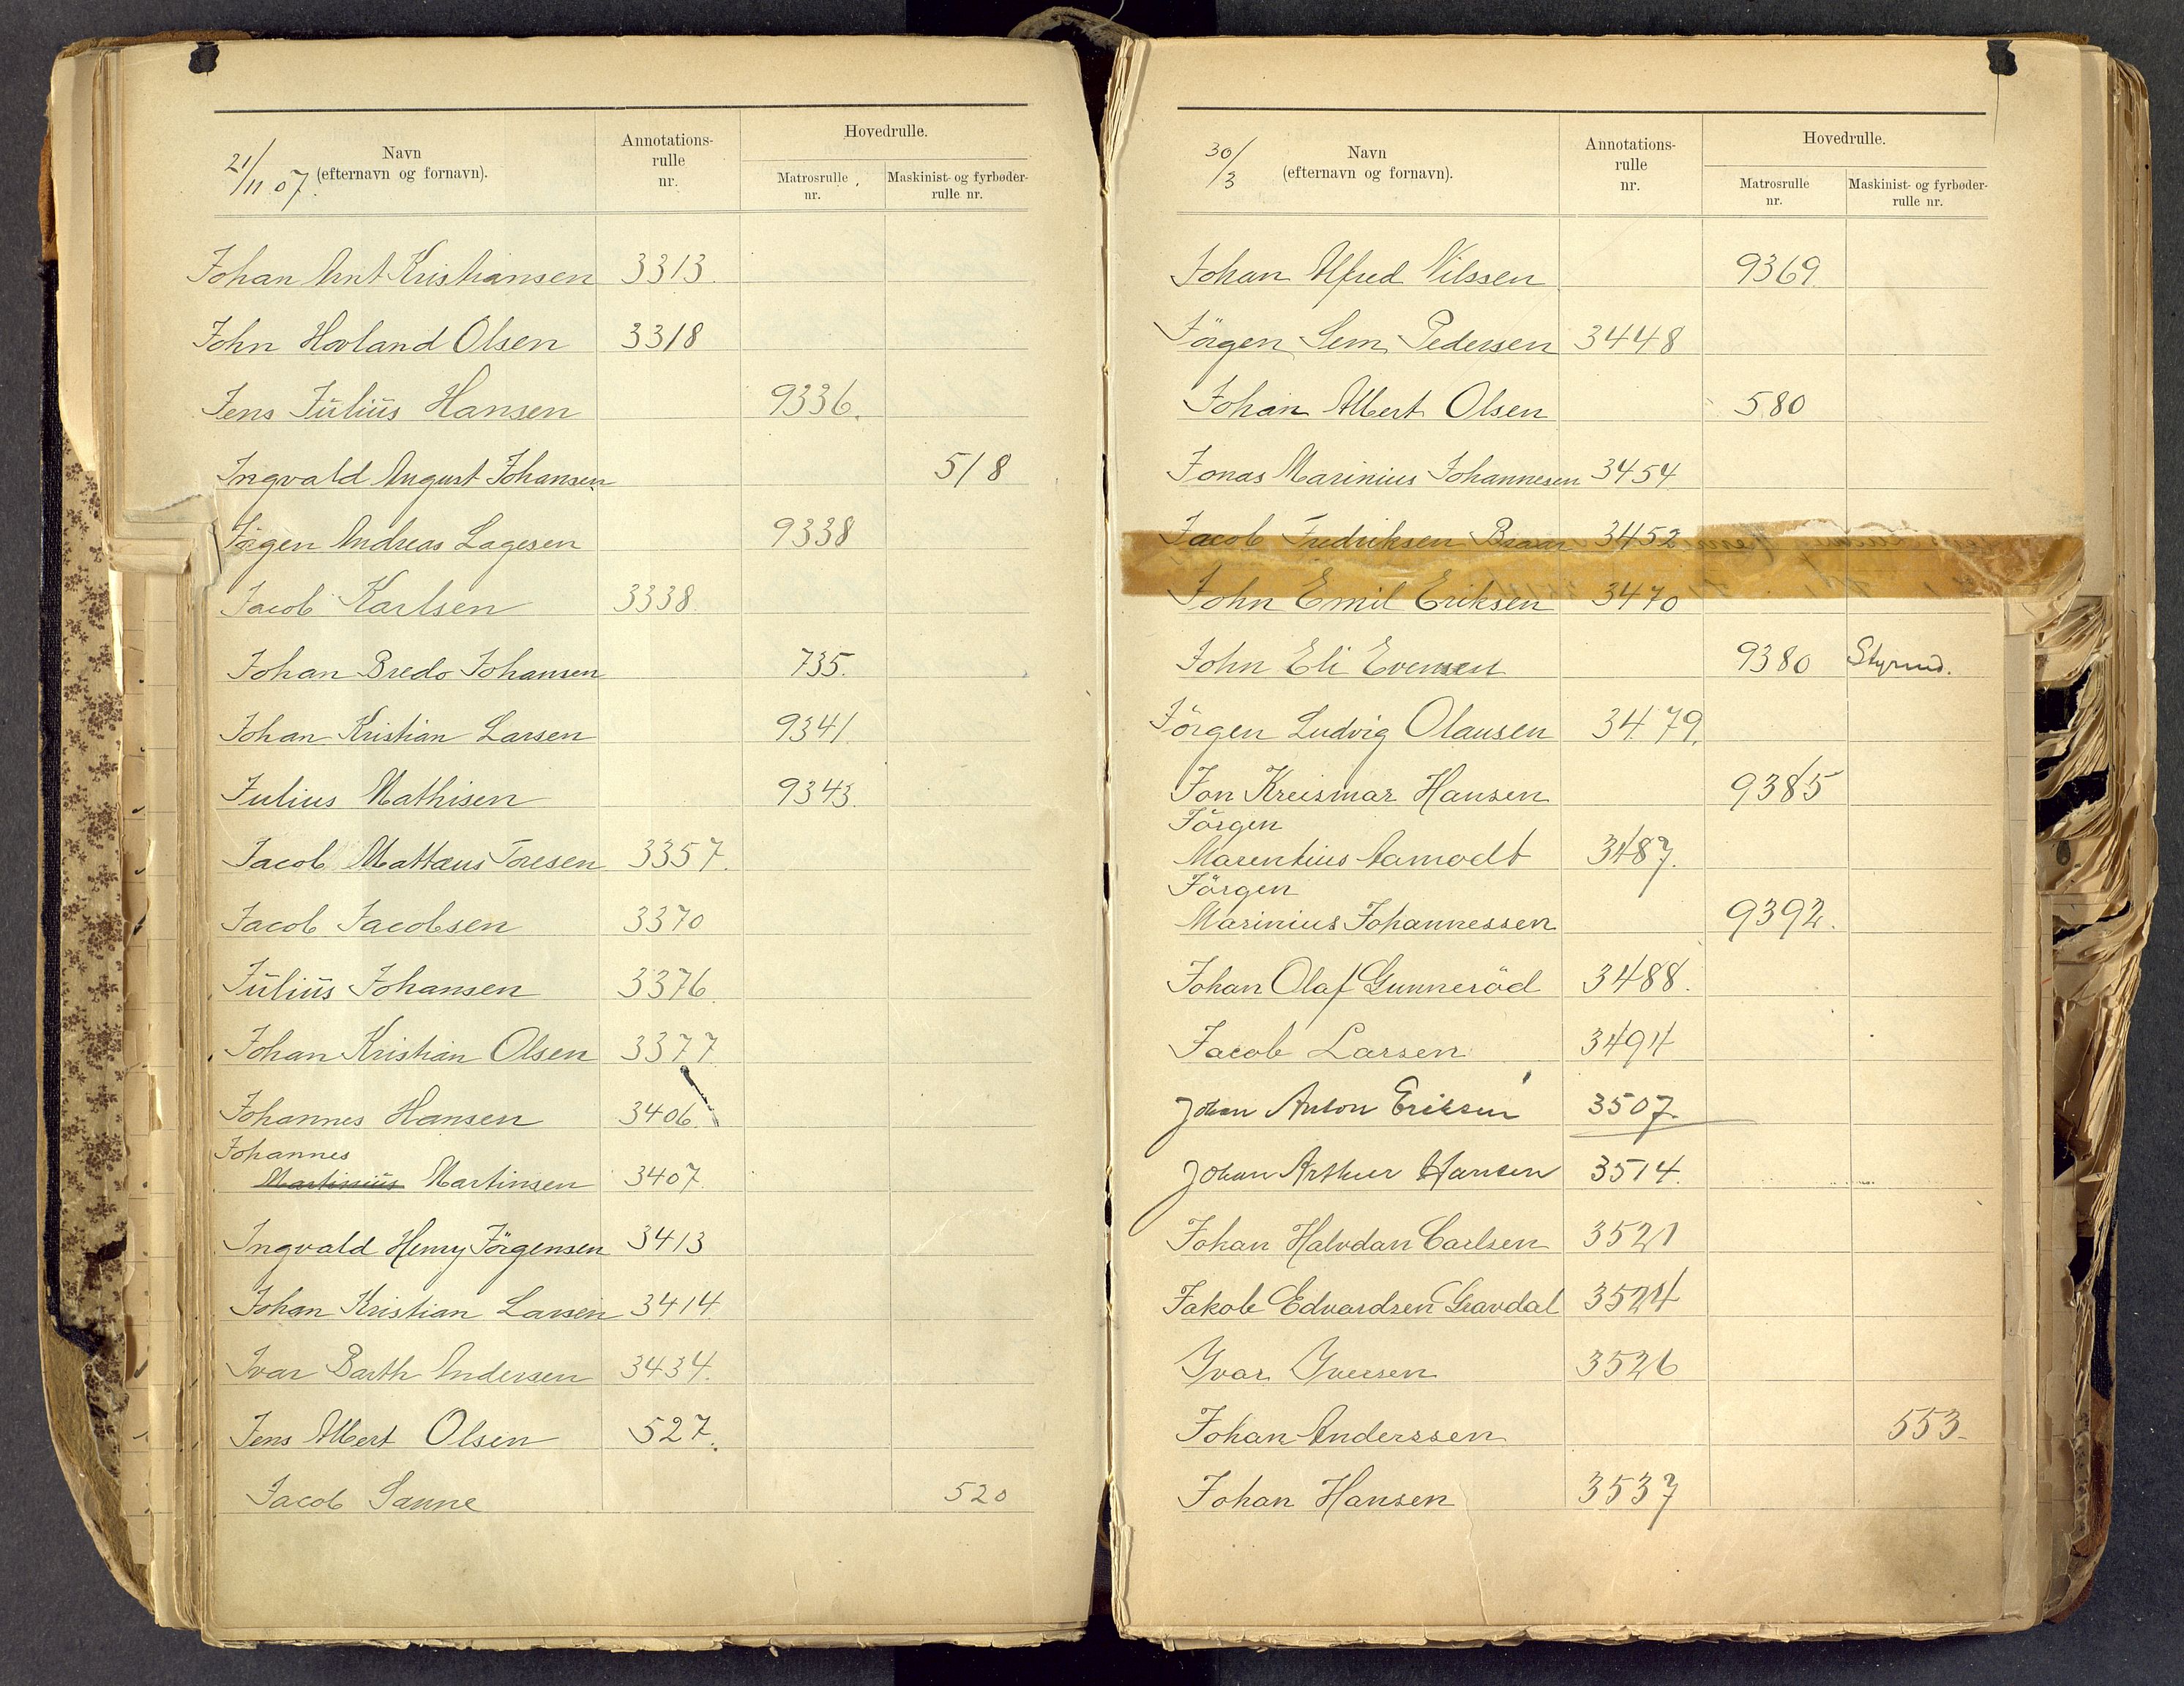 21/11 07.
Navn
(efternavn og fornavn).
Annotations-
rulle
nr.
Hovedrulle.
Matrosrulle
nr.
Maskinist- og fyrbøder-
rulle nr.
Johan Arnt Kristiansen 3313.
John Hovland Olsen 3318
Jens Julius Hansen 9336.
Ingvald August Johansen 518
Jörgen Andreas Lagesen 9338
Jacob Karlsen 3338.
Johan Bredo Johansen 735.
Johan Kristian Larsen 9341.
Julius Mathisen 9343.
Jacob Mattæus Toresen 3357.
Jacob Jacobsen 3370
Julius Johansen 3376.
Johan Kristian Olsen 3377
Johannes Hansen 3406.
Johannes
Martinius Martinsen 3407.
Ingvald Henry Jörgensen 3413
Johan Kristian Larsen 3414
Ivar Barth Andersen 3434.
Jens Albert Olsen 527.
Jacob Sanne 520
30/3
Navn
(efternavn og fornavn).
Annotations-
rulle
nr.
Hovedrulle.
Matrosrulle
nr.
Maskinist- og fyrbøder-
rulle nr.
Johan Alfred Nilssen 9369.
Jörgen Sem Pedersen 3448
Johan Albert Olsen 580
Jonas Marinius Johannesen 3454
Jacob Fredriksen Braar 3452
John Emil Eriksen 3470
John Eli Evensen 9380 Styrmd.
Jörgen Ludvig Olausen 3479.
Jon Kreismar Hansen 9385
Jörgen
Marentius Aamodt 3487.
Jörgen
Marinius Johannessen 9392.
Johan Olaf Gunneröd 3488.
Jacob Larsen 3494
Johan Anton Eriksen 3507.
Johan Arthur Hansen 3514.
Johan Halvdan Carlsen 3521
Jakob Edvardsen Gravdal 3524
Yvar Yversen 3526
Johan Anderssen 553.
Johan Hansen 3537